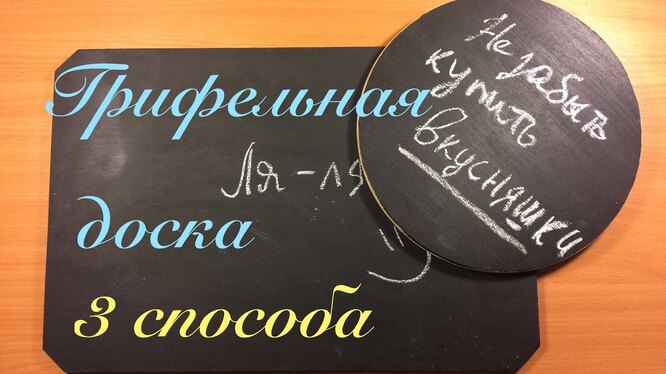 Грифельная
доска
3 способа
Ля-ля
Не забыть
купить
вкусняшки